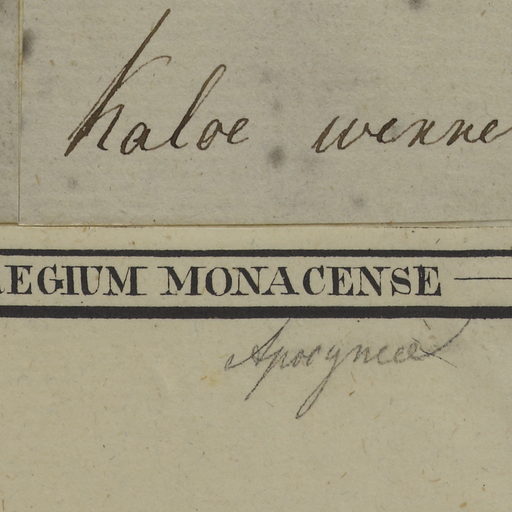 Kaloe wenne
REGIUM MONACENSE —
Apocyneae